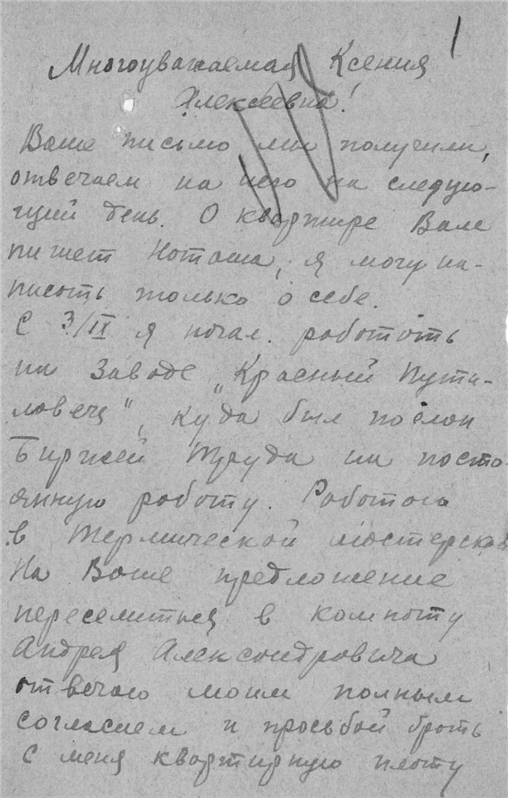 1
Многоуважаемая Ксения
Алексеевна!
Ваше письмо мы получили,
отвечаем на него на следую-
щий день. О квартире Вам
пишет Наташа, я могу на-
писать только о себе.
С 3/IX я начал работать
на заводе „Красный Пути-
ловец", куда был послан
Биржей Труда на посто-
янную работу. Работаю
в термической мастерской
На Ваше предложение
переселиться в комнату
Андрея Александровича
отвечаю моим полным
согласием и просьбой брать
с меня квартирную плату